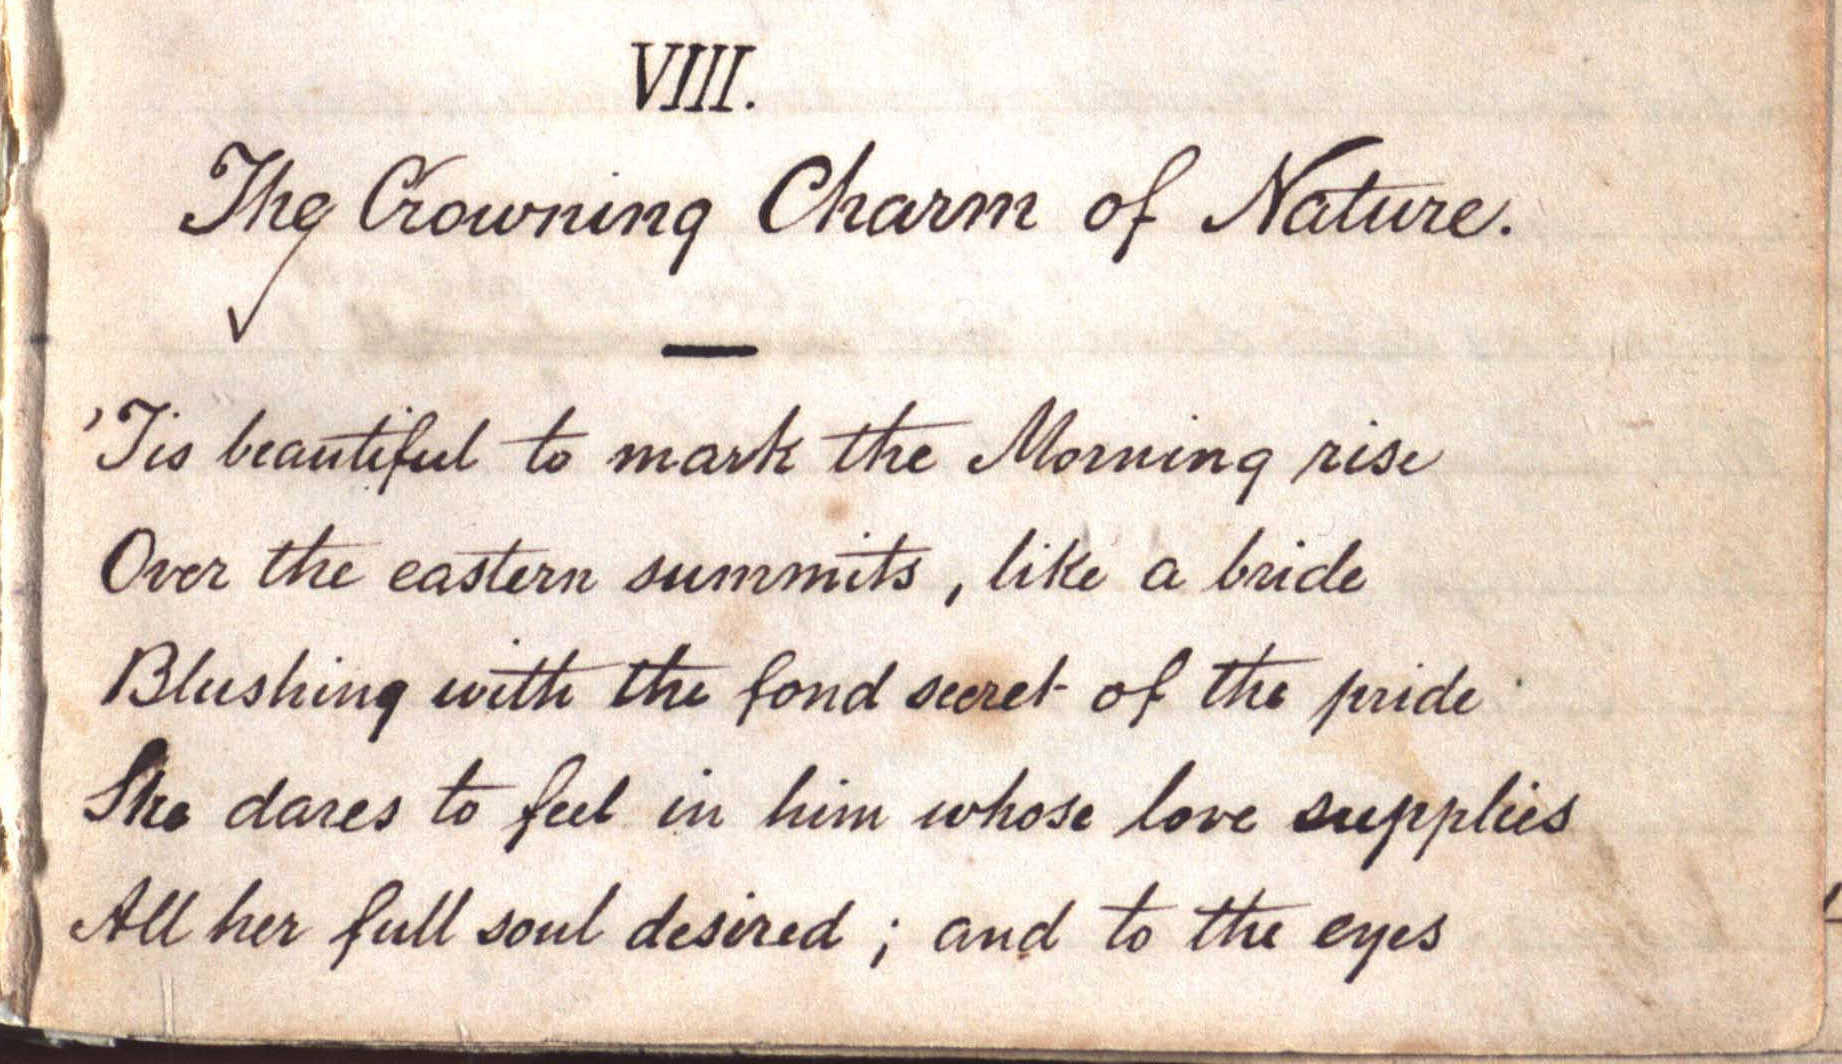 VIII.
The Crowning Charm of Nature.
'Tis beautiful to mark the Morning rise
Over the eastern summits, like a bride
Blushing with the fond secret of the pride
She dares to feel in him whose love supplies
All her full soul desired; and to the eyes